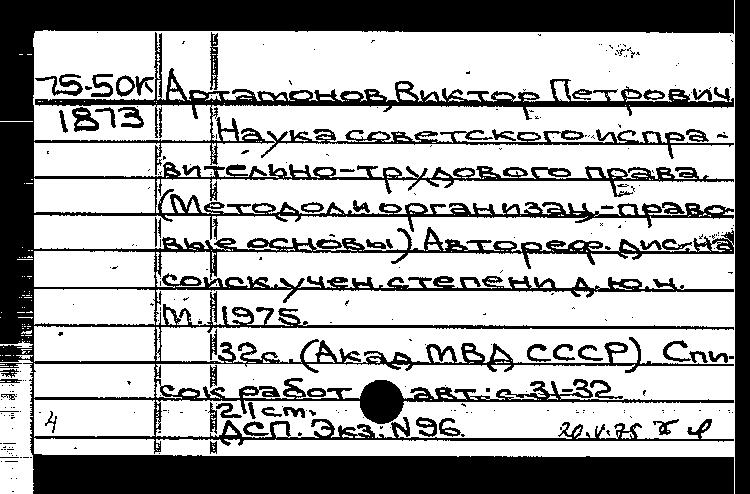 75-50К Артамонов, Виктор Петрович
1873
Наука советского испра-
вительно-трудового права.
(Методол. и организац.-право-
вые основы). Автореф. дис. на
соиск. учен. степени д.ю.н.
М., 1975.
32с. (Акад. МВД СССР). Спи-
сок работ авт.: с. 31-32.
21 ст.
4 ДСП. Экз. N 96. 20.V.75